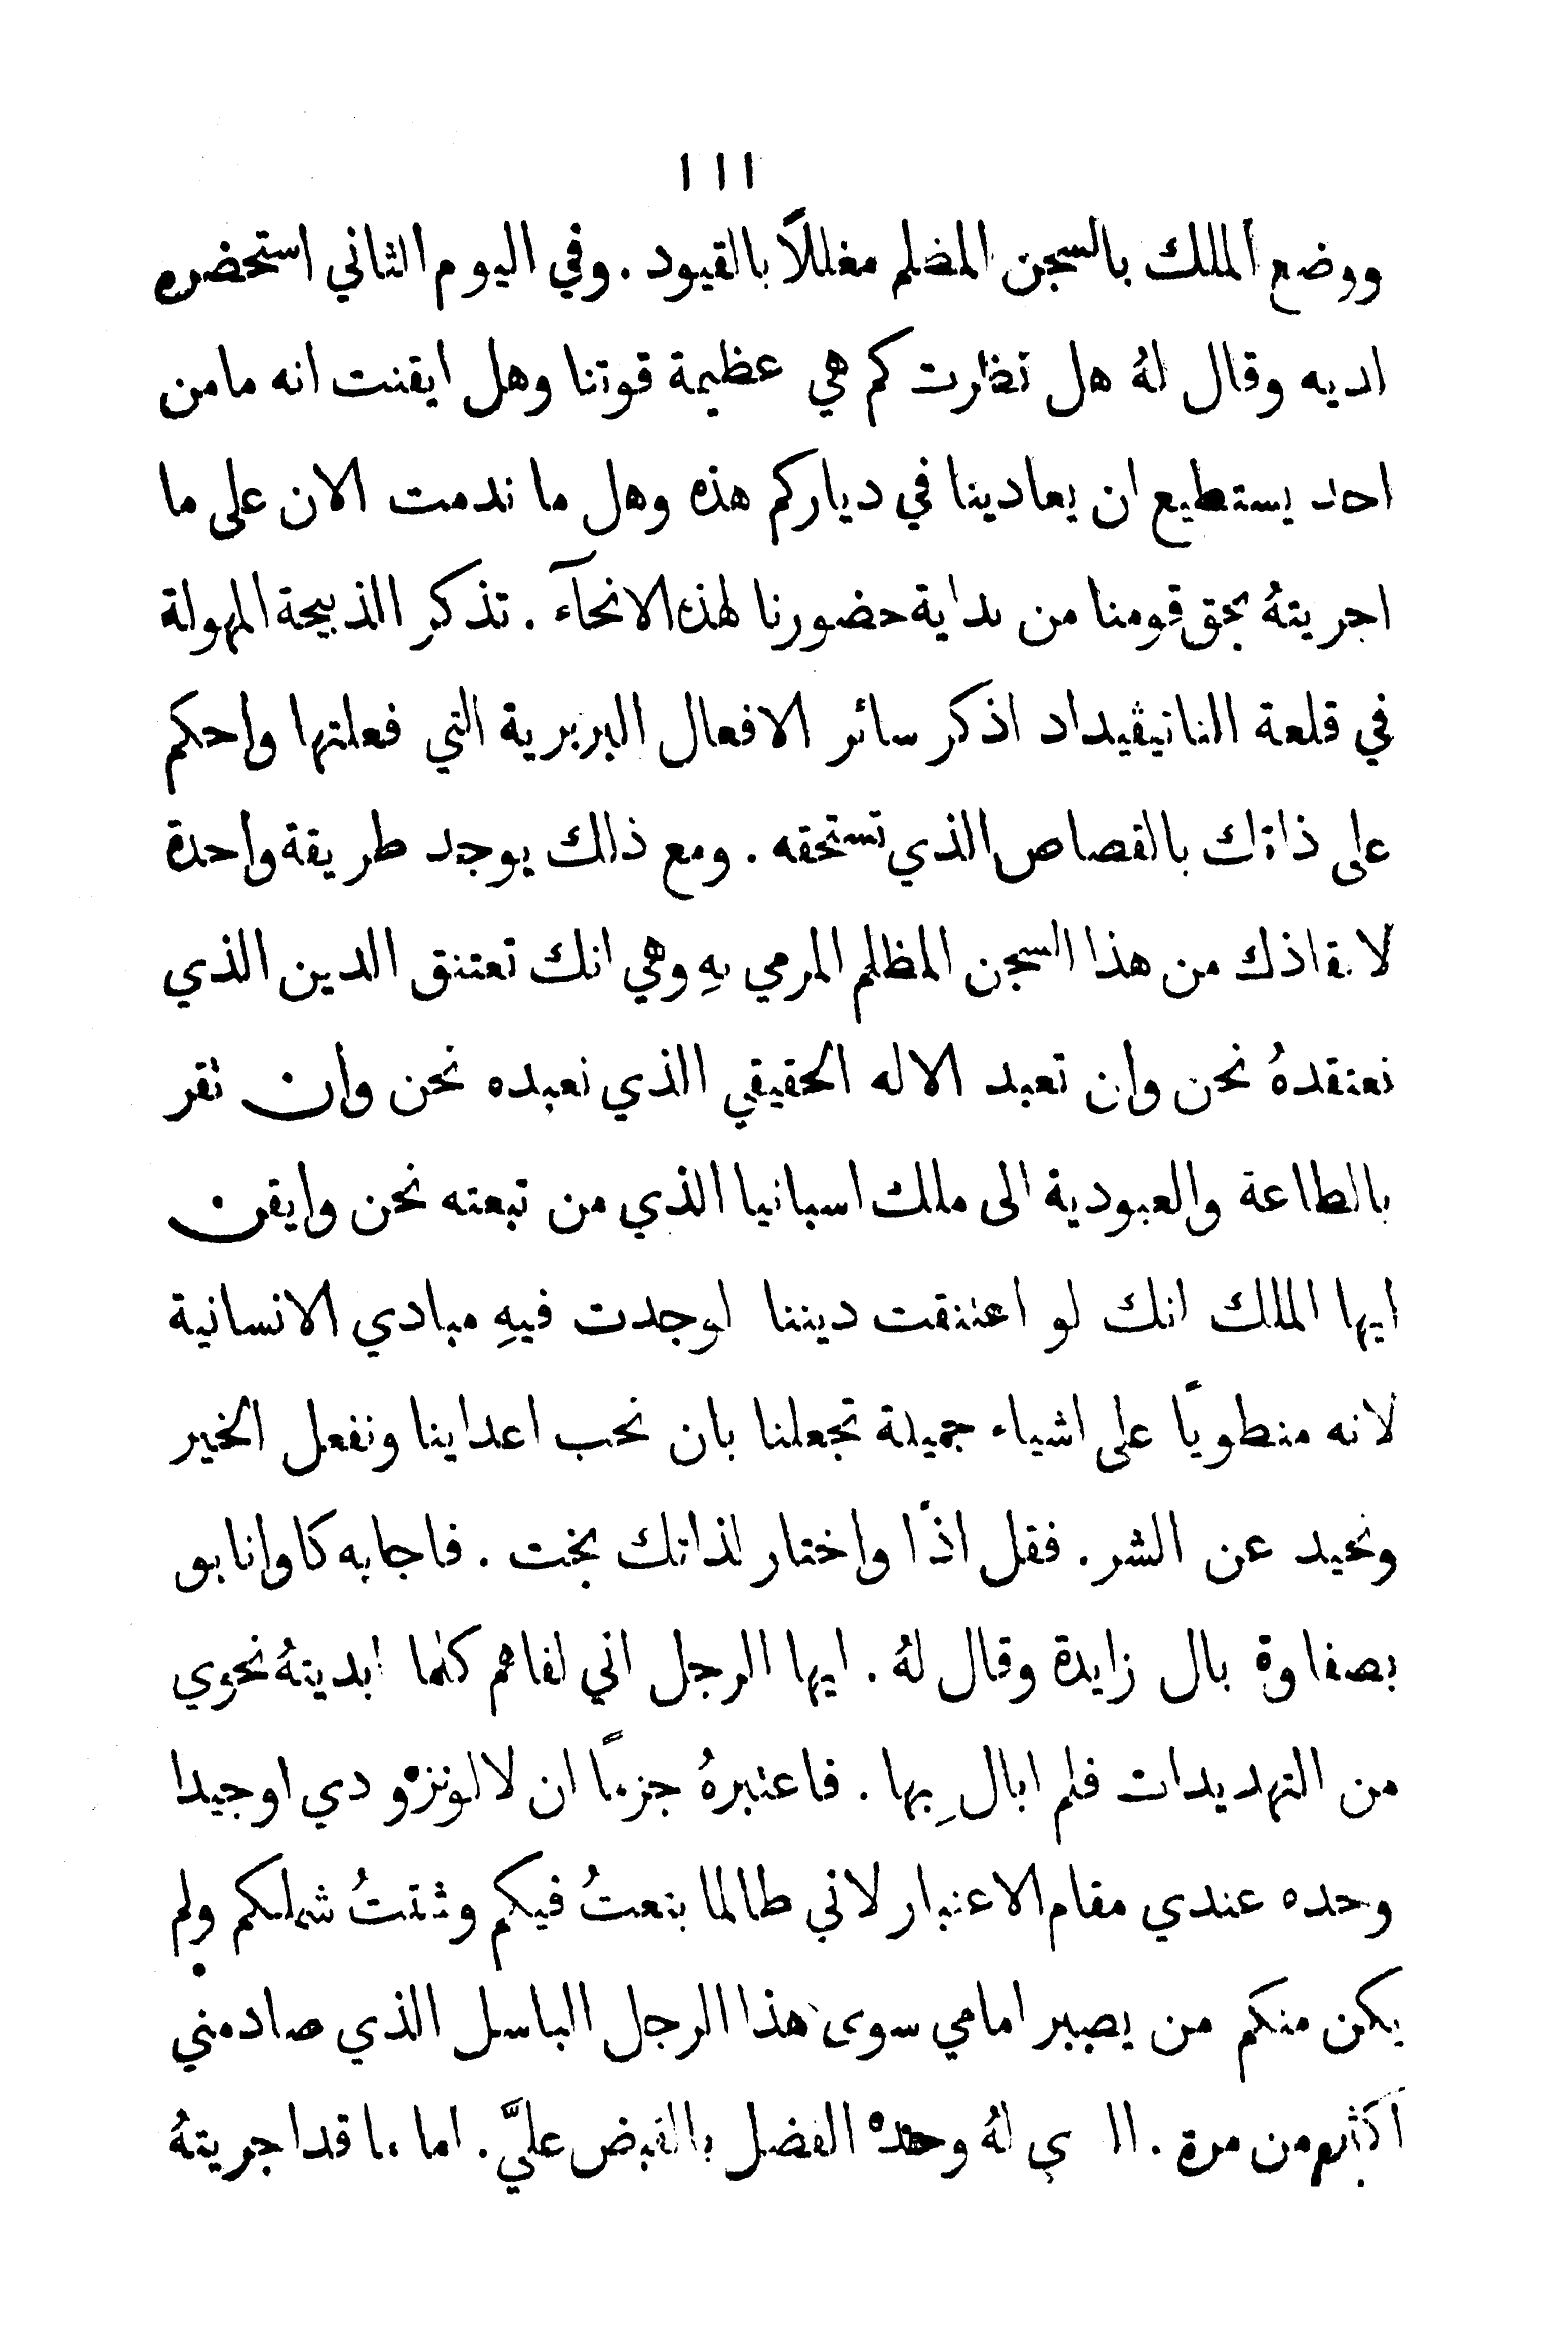 ١١١
ووضع الملك بالسجن المضلم مغللًا بالقيود . وفي اليوم الثاني استحضره
لديه وقال لهُ هل نظرت كم هي عظيمة قوتنا وهل ايقنت انه ما من
احد يستطيع ان يعادينا في دياركم هذه وهل ما ندمت الان على ما
اجريتهُ بحق قومنا من بداية حضورنا لهذه الانحآء . تذكر الذبيحة المهولة
في قلعة الناتيڤيداد اذكر سائر الافعال البربرية التي فعلتها واحكم
على ذاتك بالقصاص الذي تستحقه . ومع ذلك يوجد طريقة واحدة
لانقاذك من هذا السجن المظلم المرمي بهِ وهي انك تعتنق الدين الذي
نعتقدهُ نحن وان تعبد الاله الحقيقي الذي نعبده نحن وان تقر
بالطاعة والعبودية الى ملك اسبانيا الذي من تبعته نحن وايقن
ايها الملك انك لو اعتنقت ديننا لوجدت فيهِ مبادي الانسانية
لانه منطويًا على اشياء جميلة تجعلنا بان نحب اعداينا ونفعل الخير
ونحيد عن الشر . فقل اذًا واختار لذاتك بخت . فاجابه كاوانابو
بصفاوة بال زايدة وقال لهُ . ايها الرجل اني لفاهم كلما ابديتهُ نحوي
من التهديدات فلم ابالِ بها . فاعتبرهُ جزمًا ان لالونزو دي اوجيدا
وحده عندي مقام الاعتبار لاني طالما بتعتُ فيكم وشتتُ شملكم ولم
يكن منكم من يصبر امامي سوى هذا الرجل الباسل الذي صادمني
اكثر من مرة . الذي لهُ وحده الفضل بالقبض عليَّ . اما ما قد اجريتهُ